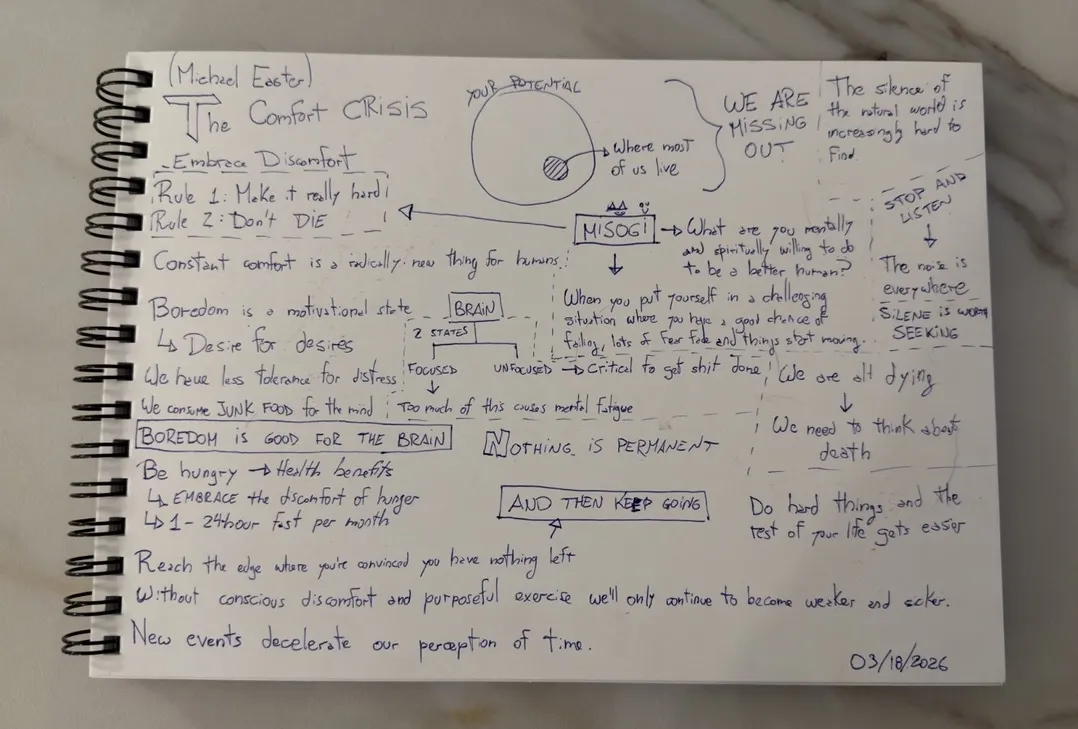 (Michael Easter)
The Comfort CRISIS
Embrace Discomfort
Rule 1: Make it really hard
Rule 2: Don't DIE
YOUR POTENTIAL
Where most
of us live
WE ARE
MISSING
OUT
The silence of
the natural world is
increasingly hard to
Find.
STOP AND
LISTEN
The noise is
everywhere
SILENE IS WORTH
SEEKING
MISOGI
What are you mentally
and spiritually willing to do
to be a better human?
When you put yourself in a challenging
situation where you have a good chance of
failing, lots of fear fade and things start moving.
Constant comfort is a radically new thing for humans.
Boredom is a motivational state
Desire for desires
We have less tolerance for distress
We consume JUNK FOOD for the mind
BRAIN
2 STATES
FOCUSED
UNFOCUSED → Critical to get shit done
Too much of this causes mental fatigue
We are all dying
We need to think about
death
BOREDOM IS GOOD FOR THE BRAIN
NOTHING IS PERMANENT
Be hungry → Health benefits
EMBRACE the discomfort of hunger
1 - 24hour fast per month
AND THEN KEEP GOING
Do hard things and the
rest of your life gets easier
Reach the edge where you're convinced you have nothing left
Without conscious discomfort and purposeful exercise we'll only continue to become weaker and sicker.
New events decelerate our perception of time.
03/18/2026